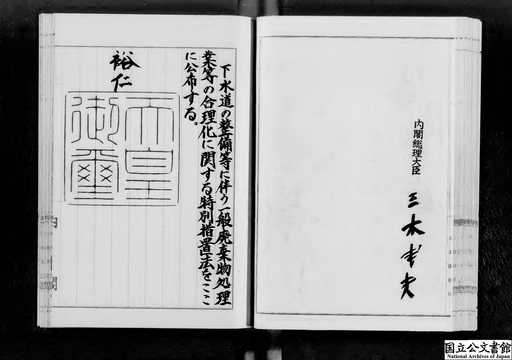 内閣総理大臣 三木武夫
下水道の整備等に伴う一般廃棄物処理
業等の合理化に関する特別措置法をここ
に公布する。
裕仁
天皇
御璽
内閣
国立公文書館
National Archives of Japan